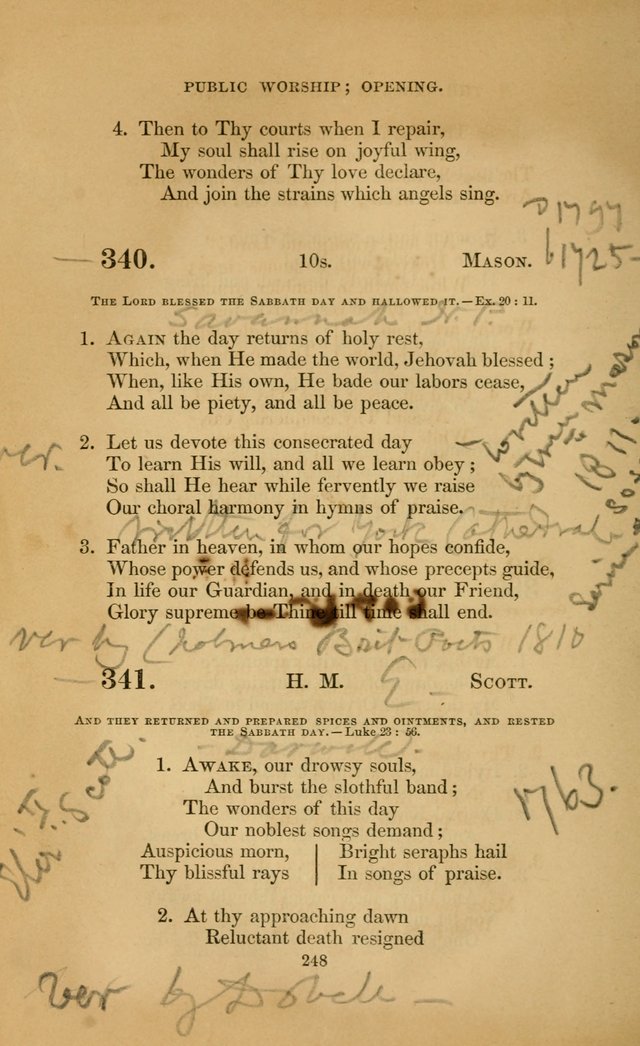 PUBLIC WORSHIP; OPENING.
4. Then to Thy courts when I repair,
My soul shall rise on joyful wing,
The wonders of Thy love declare,
And join the strains which angels sing.
1797
340. 10s. MASON. b 1725-
THE LORD BLESSED THE SABBATH DAY AND HALLOWED IT.—Ex. 20 : 11.
Savannah
1. AGAIN the day returns of holy rest,
Which, when He made the world, Jehovah blessed;
When, like His own, He bade our labors cease,
And all be piety, and all be peace.
written
by
Mason
1811.
ver.
2. Let us devote this consecrated day
To learn His will, and all we learn obey;
So shall He hear while fervently we raise
Our choral harmony in hymns of praise.
written for York Cathedral
3. Father in heaven, in whom our hopes confide,
Whose power defends us, and whose precepts guide,
In life our Guardian, and in death our Friend,
Glory supreme be Thine till time shall end.
ver by Chalmers Brit Poets 1810
341. H. M. SCOTT.
AND THEY RETURNED AND PREPARED SPICES AND OINTMENTS, AND RESTED
THE SABBATH DAY.—Luke 23 : 56.
- Darwell.
Scott
1763.
1. AWAKE, our drowsy souls,
And burst the slothful band;
The wonders of this day
Our noblest songs demand;
Auspicious morn, | Bright seraphs hail
Thy blissful rays | In songs of praise.
2. At thy approaching dawn
Reluctant death resigned
248
ver by Dobell -